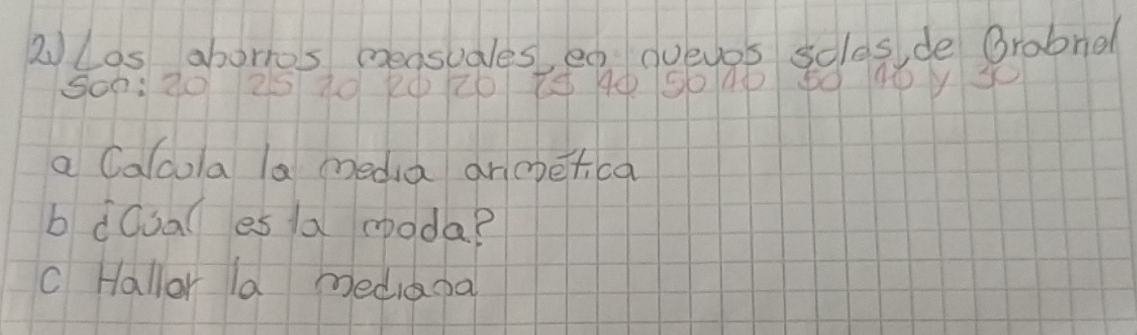 2) Los ahorros mensuales, en nuevos soles, de Brabriel
son: 20 25 20 20 20 25 40 50 40 50 40 y 30
a Calcula la media arimética
b ¿Cual es la moda?
c Hallar la mediana